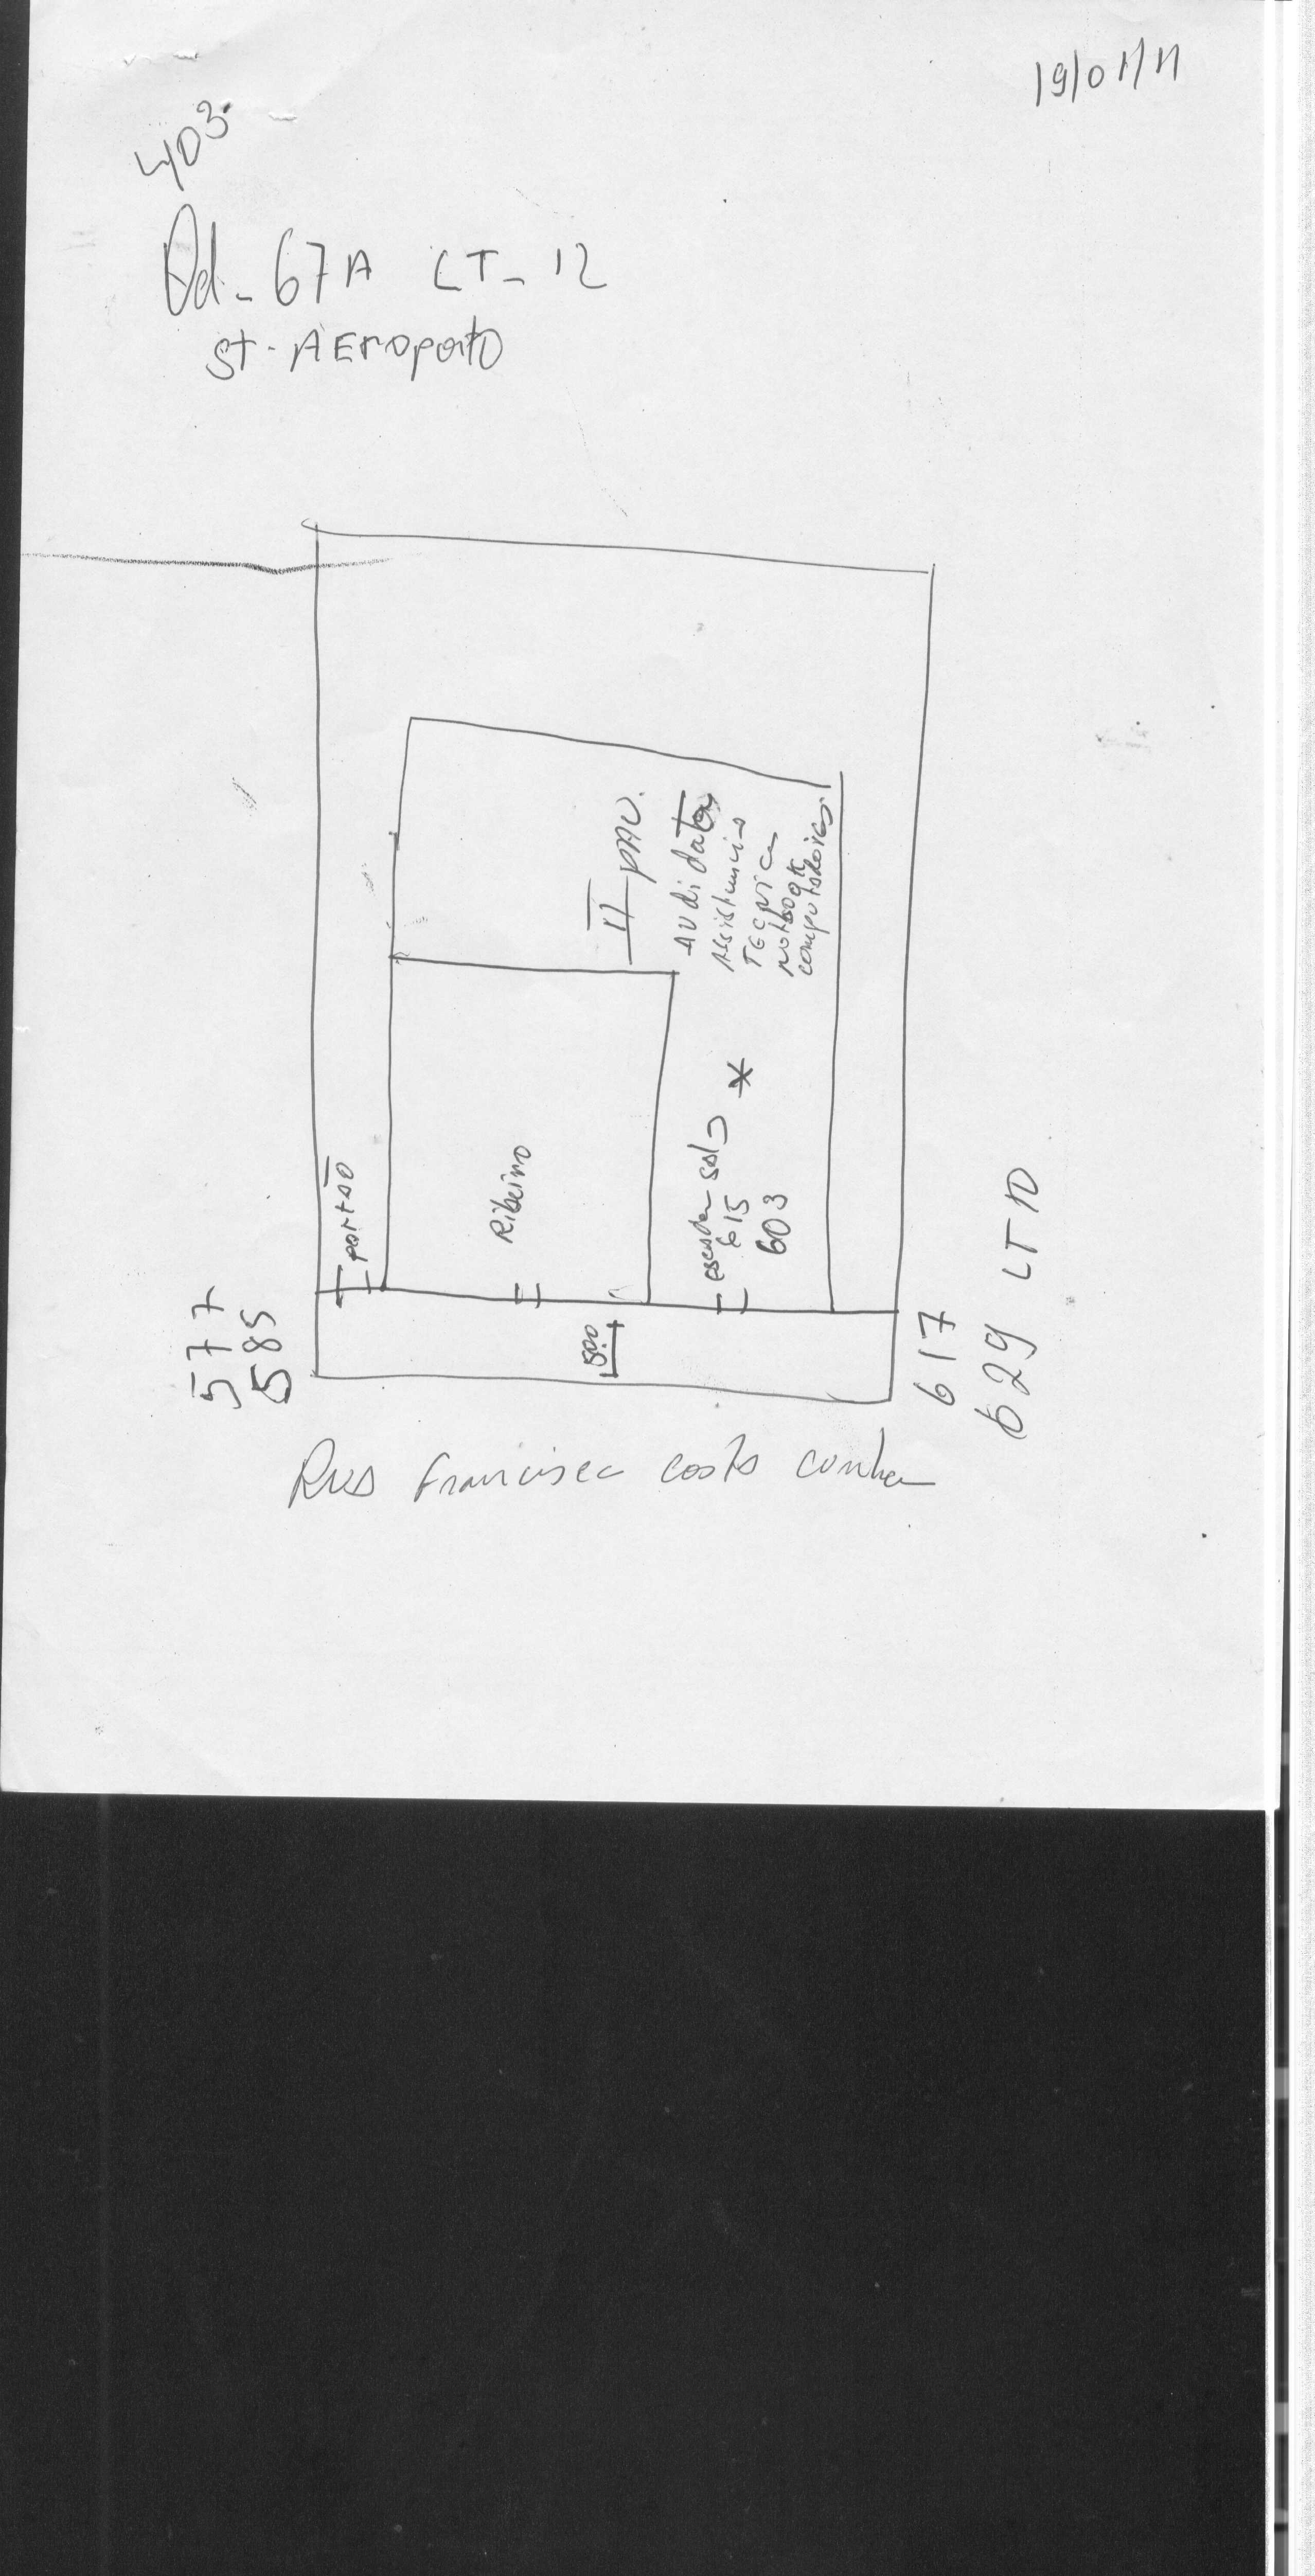 19/01/11
403
Qd - 67A LT - 12
ST - AEroporto
II PAV.
AUdidatas
Assistencia
TECNICA
notbook
computadores
portão
Ribeiro
escada sala
615
603
*
577
585
5.00
617
629 LT 10
Rua Francisca costa cunha